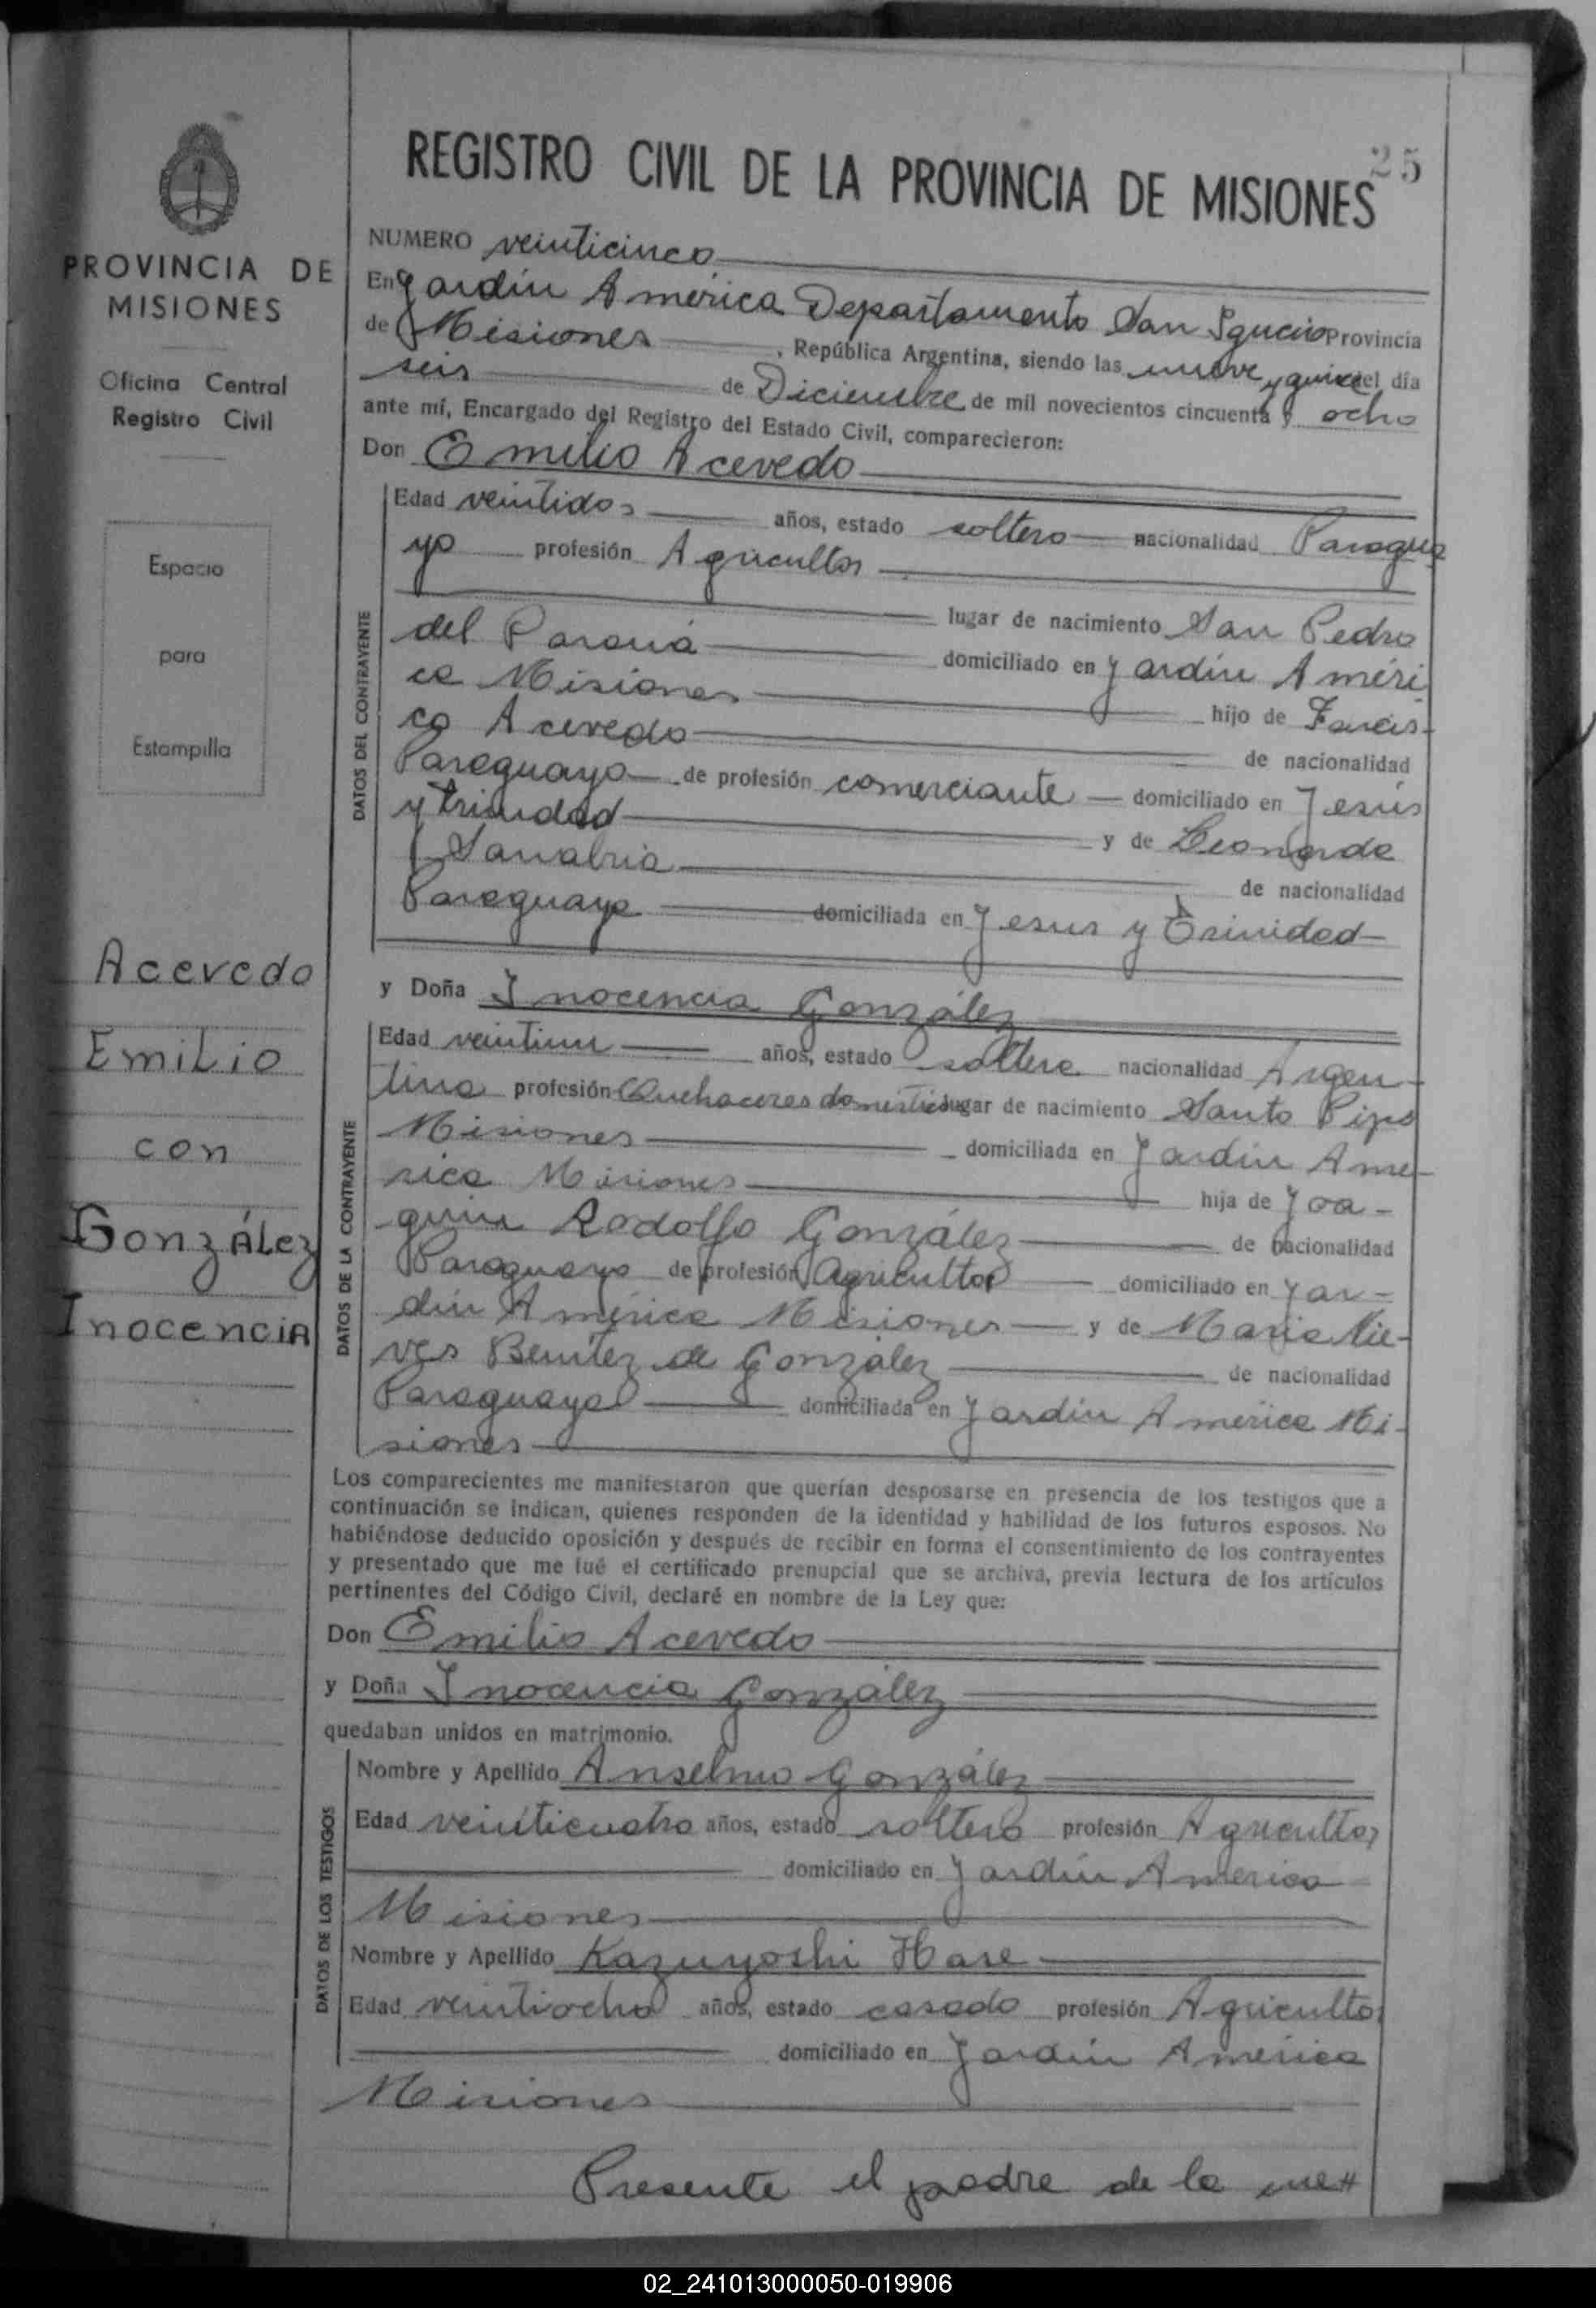 25
REGISTRO CIVIL DE LA PROVINCIA DE MISIONES
PROVINCIA DE
MISIONES
Oficina Central
Registro Civil
Espacio
para
Estampilla
Acevedo
Emilio
con
González
Inocencia
NUMERO veinticinco
En Jardín América Departamento San Ignacio Provincia
de Misiones, República Argentina, siendo las nueve y quince del día
seis de Diciembre de mil novecientos cincuenta y ocho
ante mí, Encargado del Registro del Estado Civil, comparecieron:
Don Emilio Acevedo
DATOS DEL CONTRAYENTE
Edad veintidos años, estado soltero nacionalidad Paragua
yo profesión Agricultor
lugar de nacimiento San Pedro
del Paraná domiciliado en Jardín Améri
ca Misiones hijo de Francis-
co Acevedo de nacionalidad
Paraguayo de profesión comerciante domiciliado en Jesús
y trinidad y de Leonarda
Sanabria de nacionalidad
Paraguaya domiciliada en Jesus y Trinidad
y Doña Inocencia González
DATOS DE LA CONTRAYENTE
Edad veintiun años, estado soltera nacionalidad Argen-
tina profesión Quehaceres domésticos lugar de nacimiento Santo Pipó
Misiones domiciliada en Jardín Amé-
rica Misiones hija de Joa-
quin Rodolfo González de nacionalidad
Paraguayo de profesión Agricultor domiciliado en Jar-
dín América Misiones y de Maria Nie-
ves Benítez de González de nacionalidad
Paraguaya domiciliada en Jardín América Mi-
siones
Los comparecientes me manifestaron que querían desposarse en presencia de los testigos que a
continuación se indican, quienes responden de la identidad y habilidad de los futuros esposos. No
habiéndose deducido oposición y después de recibir en forma el consentimiento de los contrayentes
y presentado que me fué el certificado prenupcial que se archiva, previa lectura de los artículos
pertinentes del Código Civil, declaré en nombre de la Ley que:
Don Emilio Acevedo
y Doña Inocencia González
quedaban unidos en matrimonio.
DATOS DE LOS TESTIGOS
Nombre y Apellido Anselmo González
Edad veinticuatro años, estado soltero profesión Agricultor
domiciliado en Jardín América
Misiones
Nombre y Apellido Kazuyoshi Hase
Edad veintiocho años, estado casado profesión Agricultor
domiciliado en Jardín América
Misiones
Presente el padre de la me#
02_241013000050-019906